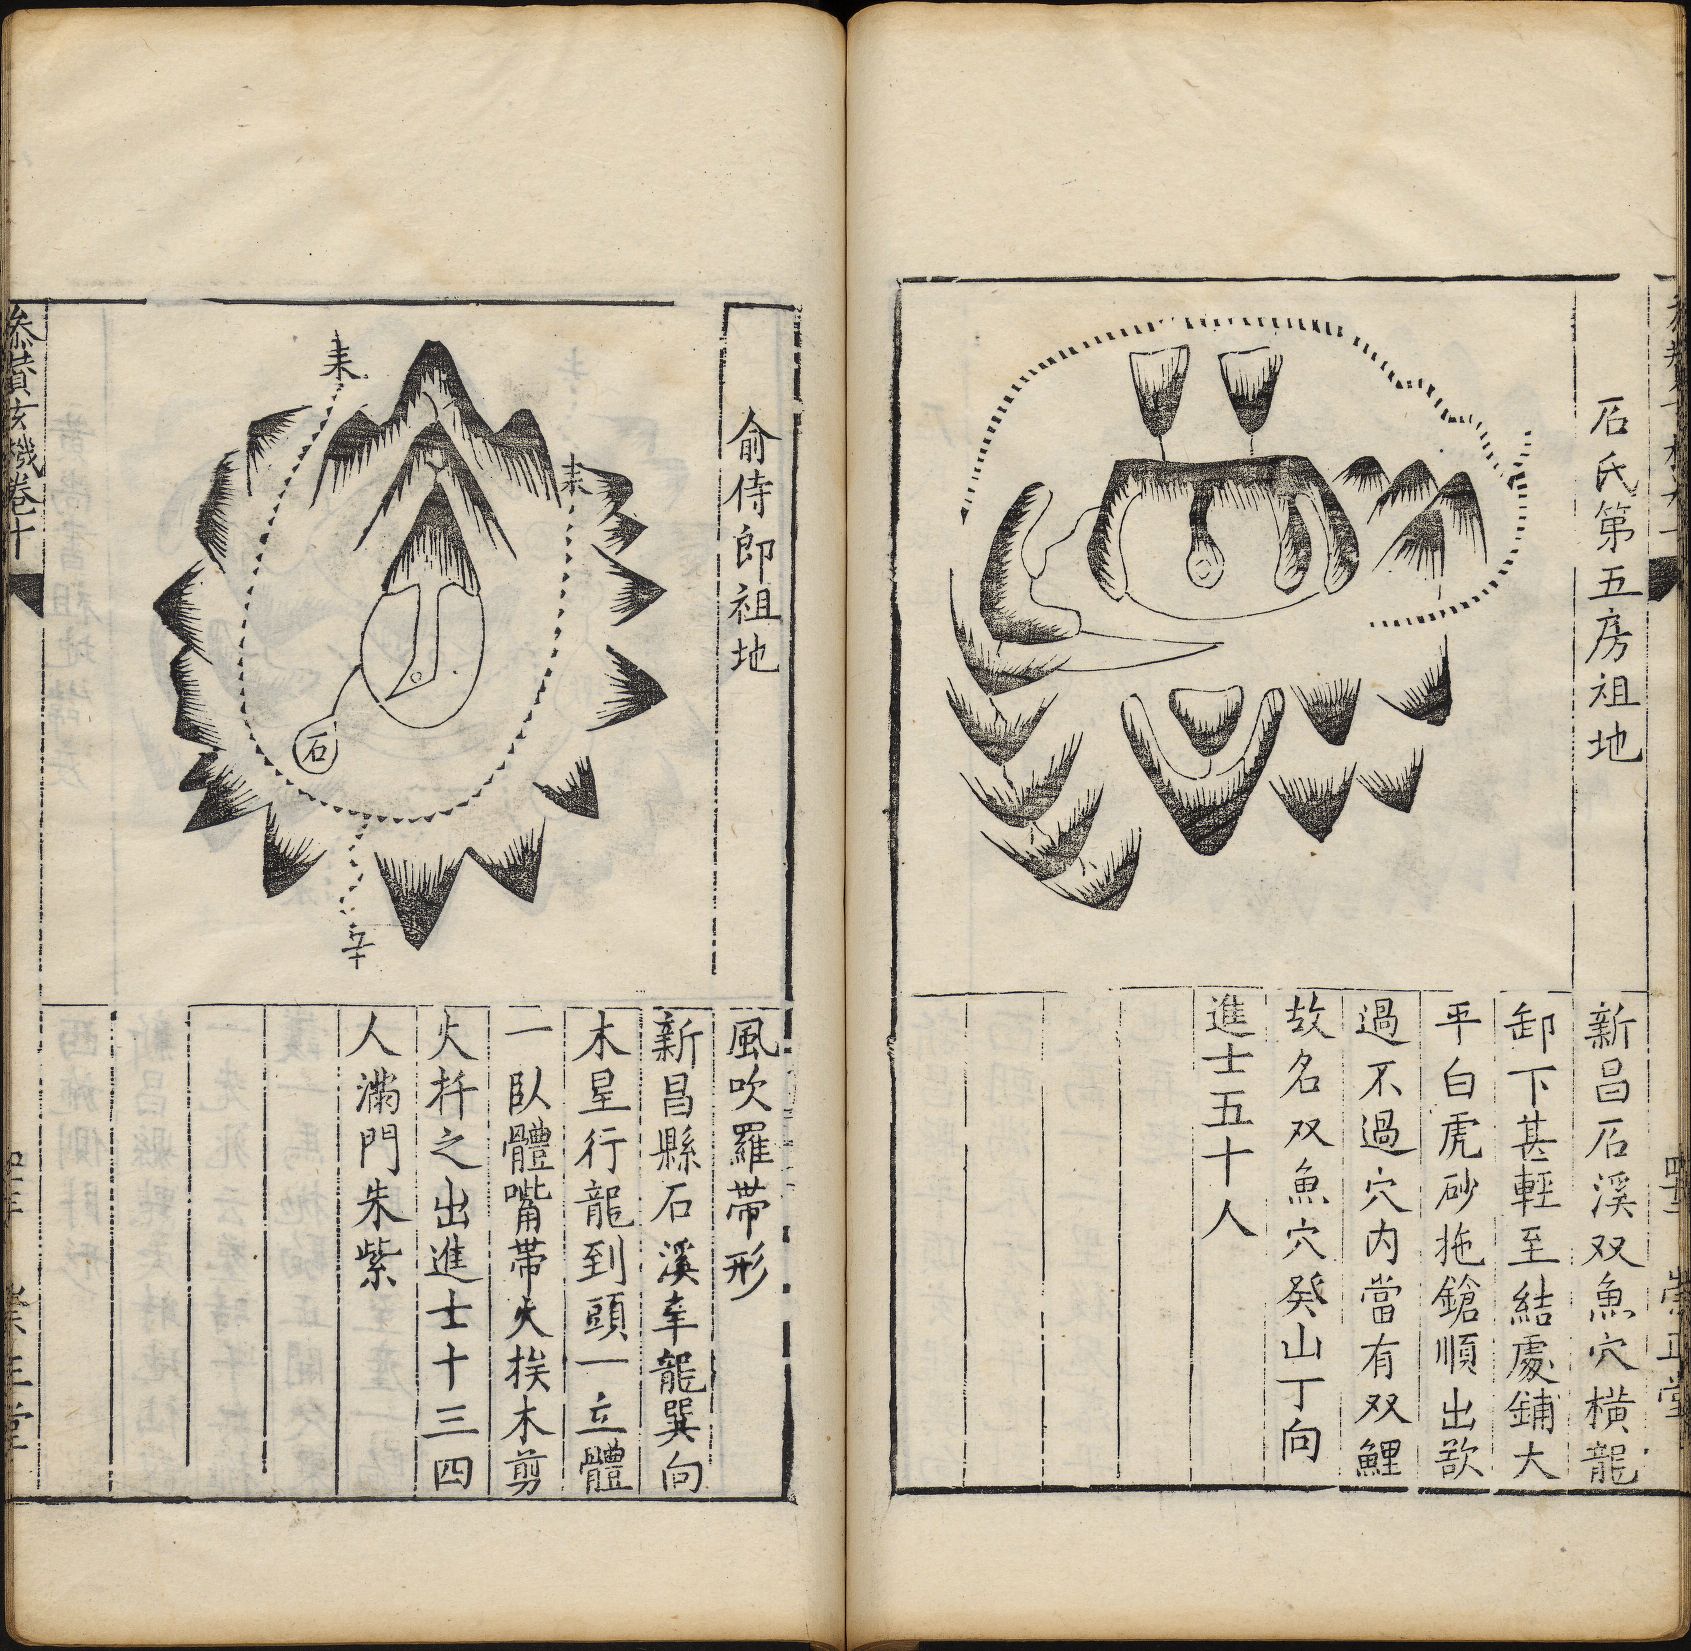 石氏第五房祖地
新昌石溪双魚穴橫龍
卸下甚輕至結處鋪大
平白虎砂拖鎗順出歆
過不過穴内當有双鯉
故名双魚穴癸山丁向
進士五十人
俞侍郎祖地
耒
耒
石
辛
風吹羅帶形
新昌縣石溪辛龍巽向
木星行龍到頭一立體
一臥體嘴帶火挨木剪
火扦之出進士十三四
人滿門朱紫
叅贊玄機卷十